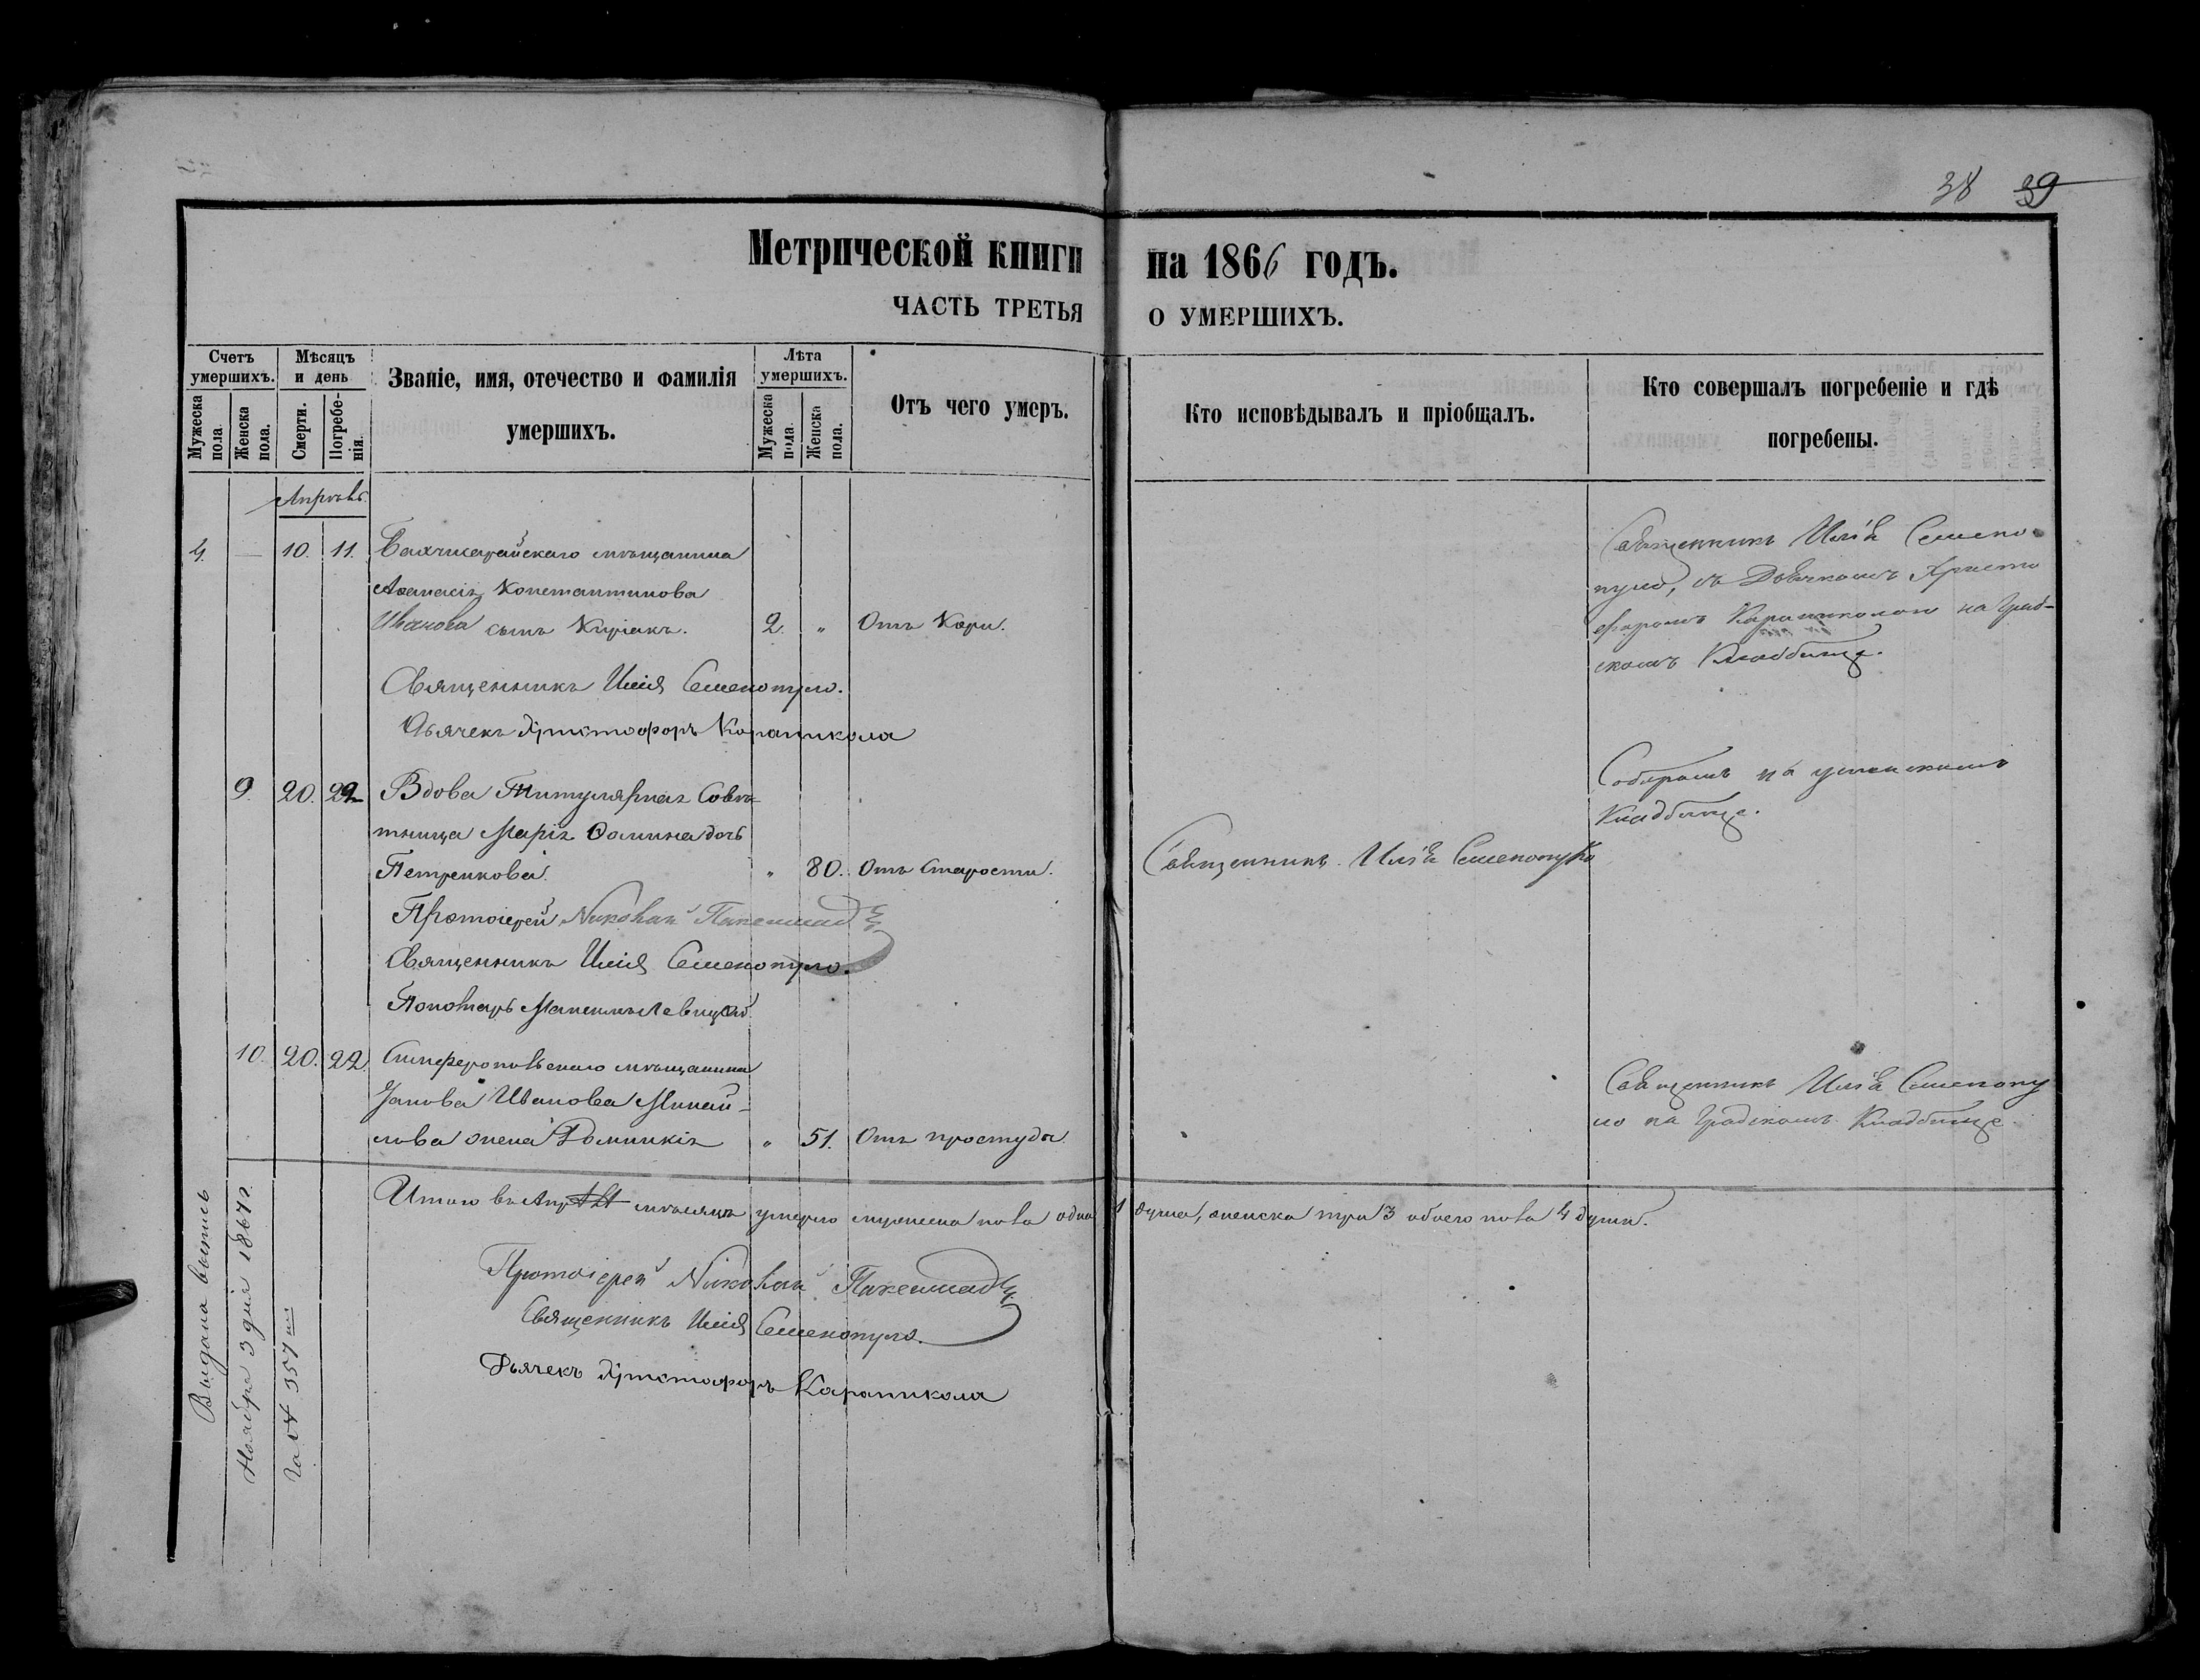 38 39
Метрической книги на 1866 годъ.
ЧАСТЬ ТРЕТЬЯ О УМЕРШИХЪ.
Счетъ умершихъ.
Мужеска пола.
Женска пола.
Мѣсяцъ и день
Смерти.
Погребенія.
Званіе, имя, отечество и фамилія
умершихъ.
Лѣта умершихъ.
Мужеска пола.
Женска пола.
Отъ чего умеръ.
Кто исповѣдывалъ и пріобщалъ.
Кто совершалъ погребеніе и гдѣ
погребены.
Апрѣль
4. — 10. 11. Бахчисарайскаго мѣщанина
Аѳанасія Константинова
Иванова сынъ Киріакъ. 2. „ Отъ Кори.
Священникъ Илія Семено
пуло, съ Дьячкомъ Христо
форомъ Караниколою на Град-
скомъ Кладбище.
Священникъ Илія Семенопуло.
Дьячекъ Христофоръ Караникола
9. 20. 22 Вдова Титулярная Совѣ-
тница Марія Ѳомина дочь
Петренкова. „ 80. Отъ Старости.
Священникъ Илія Семенопуло
Соборомъ на
Кладбище.
Протоіерей Николай
Священникъ Илія Семенопуло.
Пономарь Левицкій
10. 20. 22. Симферопольскаго мѣщанина
Иванова
жена Домникія „ 51. Отъ простуды.
Священникъ Илія Семенопу
ло на Градскомъ Кладбище.
Итого въ мѣсяцѣ умерло мужеска пола одна 1 душа, женска три 3 обоего пола 4 души.
Протоіерей Николай
Священникъ Илія Семенопуло.
Дьячекъ Христофоръ Караникола
Выдана выпись
Ноября 3 дня 1867 г.
за № 357